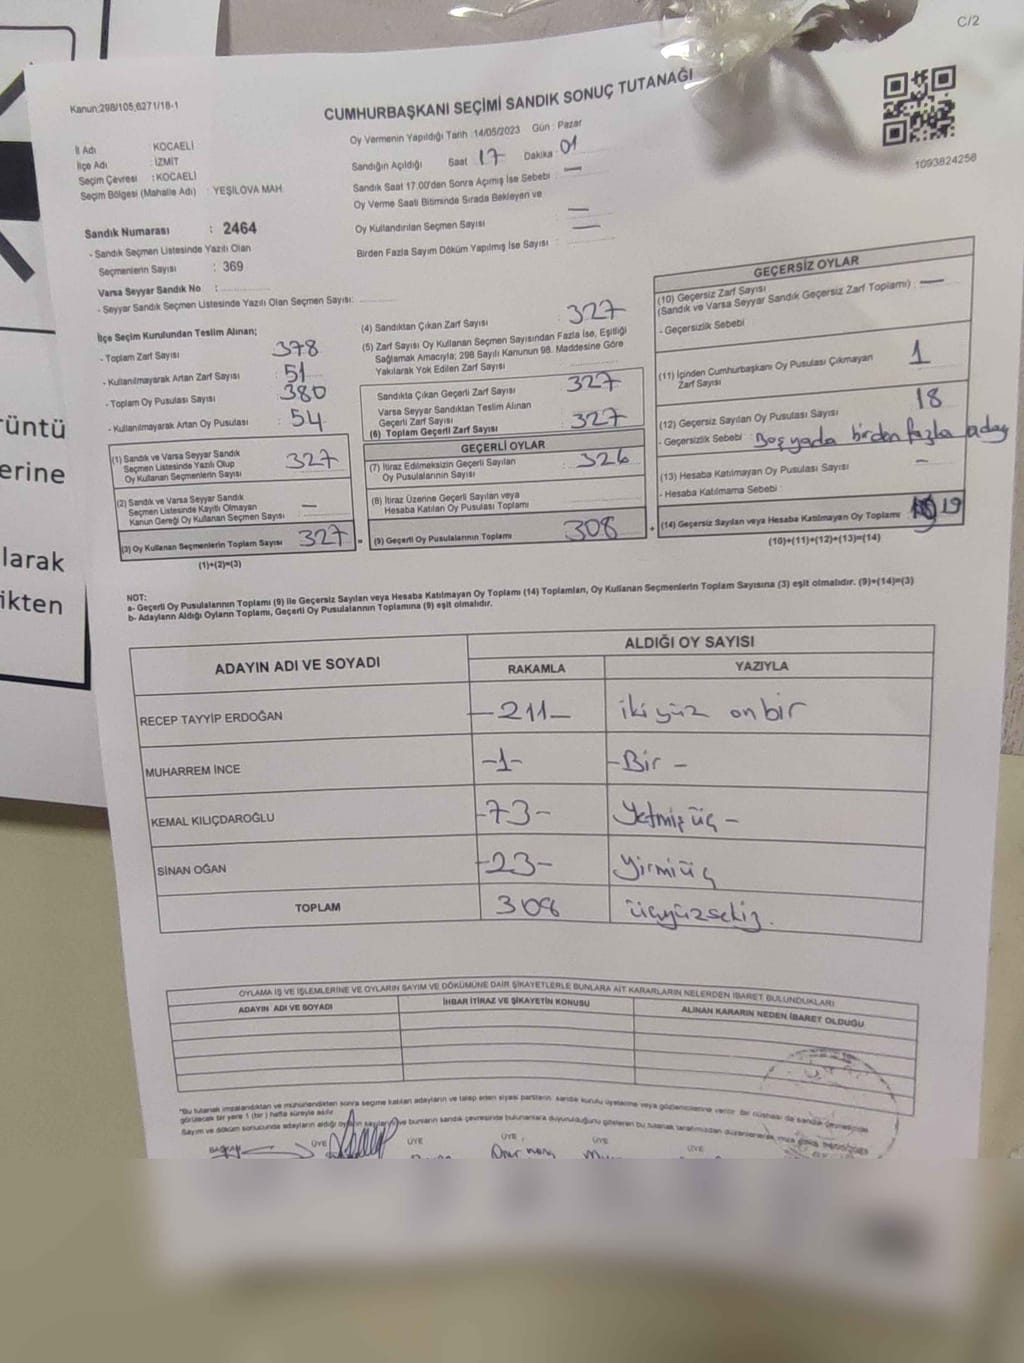 C/2
Kanun:298/105,6271/18-1
CUMHURBAŞKANI SEÇİMİ SANDIK SONUÇ TUTANAĞI
1093824258
İl Adı : KOCAELİ
İlçe Adı : İZMİT
Seçim Çevresi : KOCAELİ
Seçim Bölgesi (Mahalle Adı) : YEŞİLOVA MAH.
Oy Vermenin Yapıldığı Tarih : 14/05/2023 Gün : Pazar
Sandığın Açıldığı Saat 17 Dakika : 01
Sandık Saat 17.00'dan Sonra Açımış İse Sebebi : —
Oy Verme Saati Bitiminde Sırada Bekleyen ve
Oy Kullandırılan Seçmen Sayısı —
Birden Fazla Sayım Döküm Yapılmış İse Sayısı : —
Sandık Numarası : 2464
- Sandık Seçmen Listesinde Yazılı Olan
Seçmenlerin Sayısı : 369
Varsa Seyyar Sandık No :
- Seyyar Sandık Seçmen Listesinde Yazılı Olan Seçmen Sayısı:
İlçe Seçim Kurulundan Teslim Alınan;
- Toplam Zarf Sayısı 378
- Kullanılmayarak Artan Zarf Sayısı : 51
- Toplam Oy Pusulası Sayısı : 380
- Kullanılmayarak Artan Oy Pusulası : 54
(1) Sandık ve Varsa Seyyar Sandık
Seçmen Listesinde Yazılı Olup
Oy Kullanan Seçmenlerin Sayısı : 327
(2) Sandık ve Varsa Seyyar Sandık
Seçmen Listesinde Kayıtlı Olmayan
Kanun Gereği Oy Kullanan Seçmen Sayısı —
(3) Oy Kullanan Seçmenlerin Toplam Sayısı 327
(1)+(2)=(3)
(4) Sandıktan Çıkan Zarf Sayısı : 327
(5) Zarf Sayısı Oy Kullanan Seçmen Sayısından Fazla İse, Eşitliği
Sağlamak Amacıyla; 298 Sayılı Kanunun 98. Maddesine Göre
Yakılarak Yok Edilen Zarf Sayısı
Sandıkta Çıkan Geçerli Zarf Sayısı : 327
Varsa Seyyar Sandıktan Teslim Alınan
Geçerli Zarf Sayısı
(6) Toplam Geçerli Zarf Sayısı : 327
GEÇERLİ OYLAR
(7) İtiraz Edilmeksizin Geçerli Sayılan
Oy Pusulalarının Sayısı : 326
(8) İtiraz Üzerine Geçerli Sayılan veya
Hesaba Katılan Oy Pusulası Toplamı
= (9) Geçerli Oy Pusulalarının Toplamı 308
GEÇERSİZ OYLAR
(10) Geçersiz Zarf Sayısı
(Sandık ve Varsa Seyyar Sandık Geçersiz Zarf Toplamı) : —
- Geçersizlik Sebebi
(11) İçinden Cumhurbaşkanı Oy Pusulası Çıkmayan
Zarf Sayısı 1
(12) Geçersiz Sayılan Oy Pusulası Sayısı 18
- Geçersizlik Sebebi : Boş yada birden fazla aday
(13) Hesaba Katılmayan Oy Pusulası Sayısı —
- Hesaba Katılmama Sebebi :
+ (14) Geçersiz Sayılan veya Hesaba Katılmayan Oy Toplamı : 19
(10)+(11)+(12)+(13)=(14)
NOT:
a- Geçerli Oy Pusulalarının Toplamı (9) ile Geçersiz Sayılan veya Hesaba Katılmayan Oy Toplamı (14) Toplamları, Oy Kullanan Seçmenlerin Toplam Sayısına (3) eşit olmalıdır. (9)+(14)=(3)
b- Adayların Aldığı Oyların Toplamı, Geçerli Oy Pusulalarının Toplamına (9) eşit olmalıdır.
ADAYIN ADI VE SOYADI
ALDIĞI OY SAYISI
RAKAMLA YAZIYLA
RECEP TAYYİP ERDOĞAN —211— iki yüz on bir
MUHARREM İNCE -1- -Bir -
KEMAL KILIÇDAROĞLU -73- Yetmiş üç -
SİNAN OĞAN -23- Yirmi üç
TOPLAM 308 üçyüzsekiz.
OYLAMA İŞ VE İŞLEMLERİNE VE OYLARIN SAYIM VE DÖKÜMÜNE DAİR ŞİKAYETLERLE BUNLARA AİT KARARLARIN NELERDEN İBARET BULUNDUKLARI
ADAYIN ADI VE SOYADI İHBAR İTİRAZ VE ŞİKAYETİN KONUSU ALINAN KARARIN NEDEN İBARET OLDUĞU
*Bu tutanak imzalandıktan ve mühürlendikten sonra seçime katılan adayların ve talep eden siyasi partilerin sandık kurulu üyelerine veya gözlemcilerine verilir. Bir nüshası da sandık çevresinde
görülecek bir yere 1 (bir) hafta süreyle asılır.
BAŞKAN ÜYE ÜYE ÜYE ÜYE ÜYE
rüntü
erine
larak
ikten